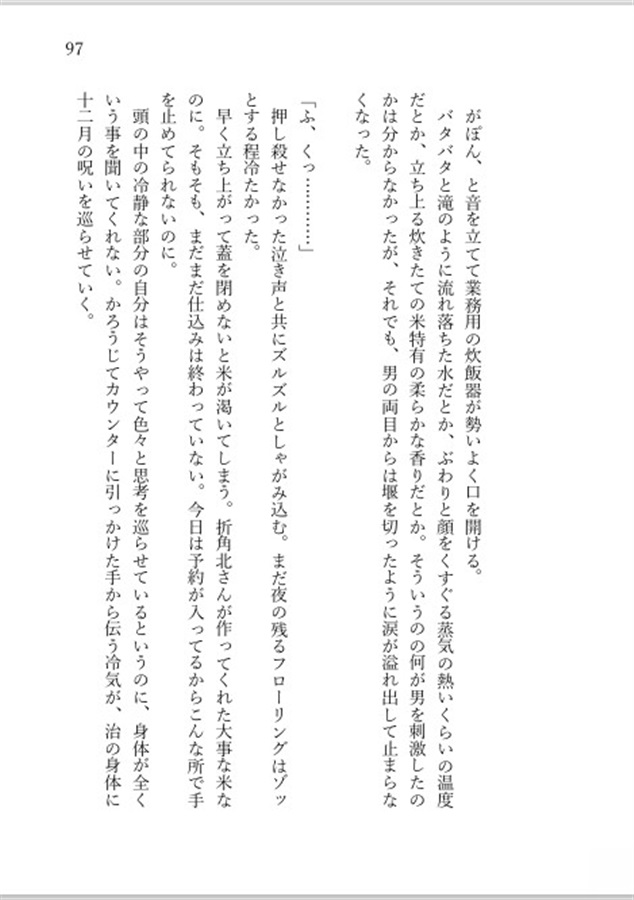 97
がぽん、と音を立てて業務用の炊飯器が勢いよく口を開ける。
バタバタと滝のように流れ落ちた水だとか、ぶわりと顔をくすぐる蒸気の熱いくらいの温度
だとか、立ち上る炊きたての米特有の柔らかな香りだとか。そういうのの何が男を刺激したの
かは分からなかったが、それでも、男の両目からは堰を切ったように涙が溢れ出して止まらな
くなった。
「ふ、くっ…………」
押し殺せなかった泣き声と共にズルズルとしゃがみ込む。まだ夜の残るフローリングはゾッ
とする程冷たかった。
早く立ち上がって蓋を閉めないと米が渇いてしまう。折角北さんが作ってくれた大事な米な
のに。そもそも、まだまだ仕込みは終わっていない。今日は予約が入ってるからこんな所で手
を止めてられないのに。
頭の中の冷静な部分の自分はそうやって色々と思考を巡らせているというのに、身体が全く
いう事を聞いてくれない。かろうじてカウンターに引っかけた手から伝う冷気が、治の身体に
十二月の呪いを巡らせていく。